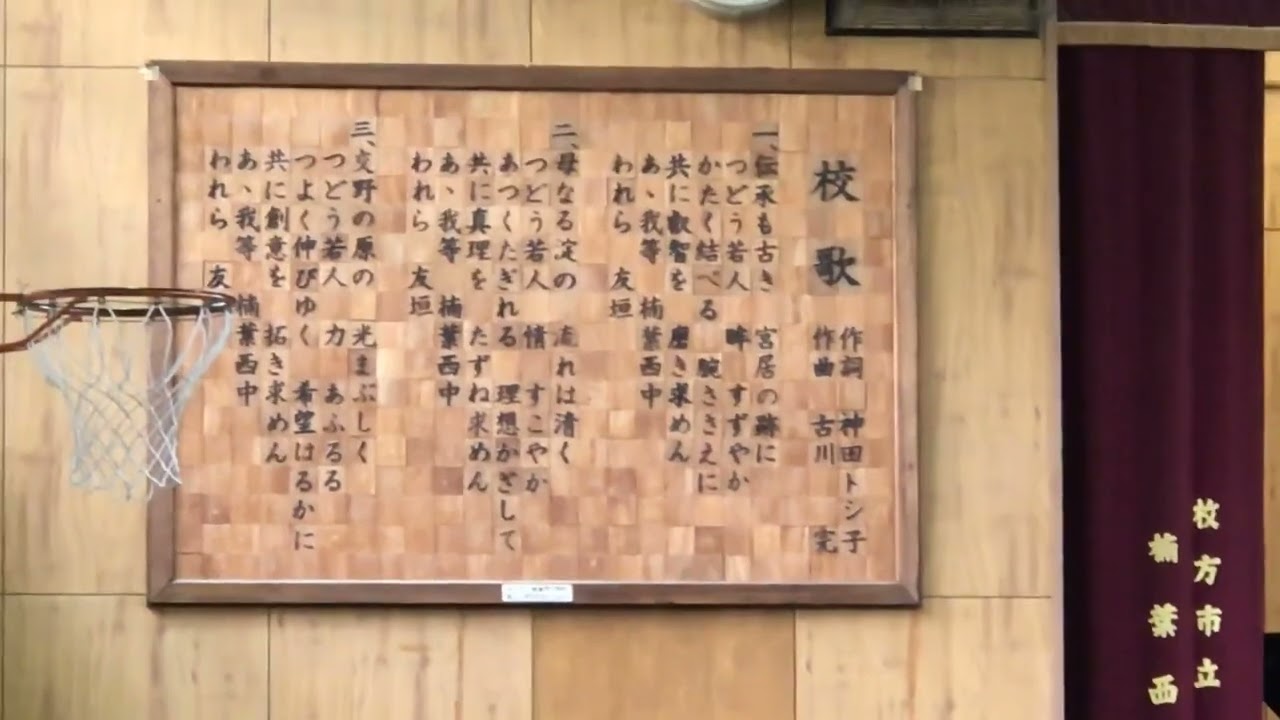 校歌
作詞 神田トシ子
作曲 古川 完
一、伝承も古き 宮居の跡に
つどう若人 眸 すずやか
かたく結べる 腕ささえに
共に叡智を 磨き求めん
あゝ我等 楠葉西中
われら 友垣
二、母なる淀の 流れは清く
つどう若人 情 すこやか
あつくたぎれる 理想かざして
共に真理を たずね求めん
あゝ我等 楠葉西中
われら 友垣
三、交野の原の 光まぶしく
つどう若人 力 あふるる
つよく伸びゆく 希望はるかに
共に創意を 拓き求めん
あゝ我等 楠葉西中
われら 友
枚方市立
楠葉西